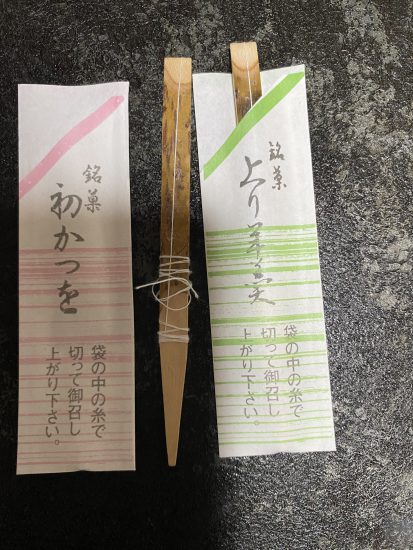 銘菓
初かつを
袋の中の糸で
切って御召し
上がり下さい。
銘菓
上り羊羹
袋の中の糸で
切って御召し
上がり下さい。